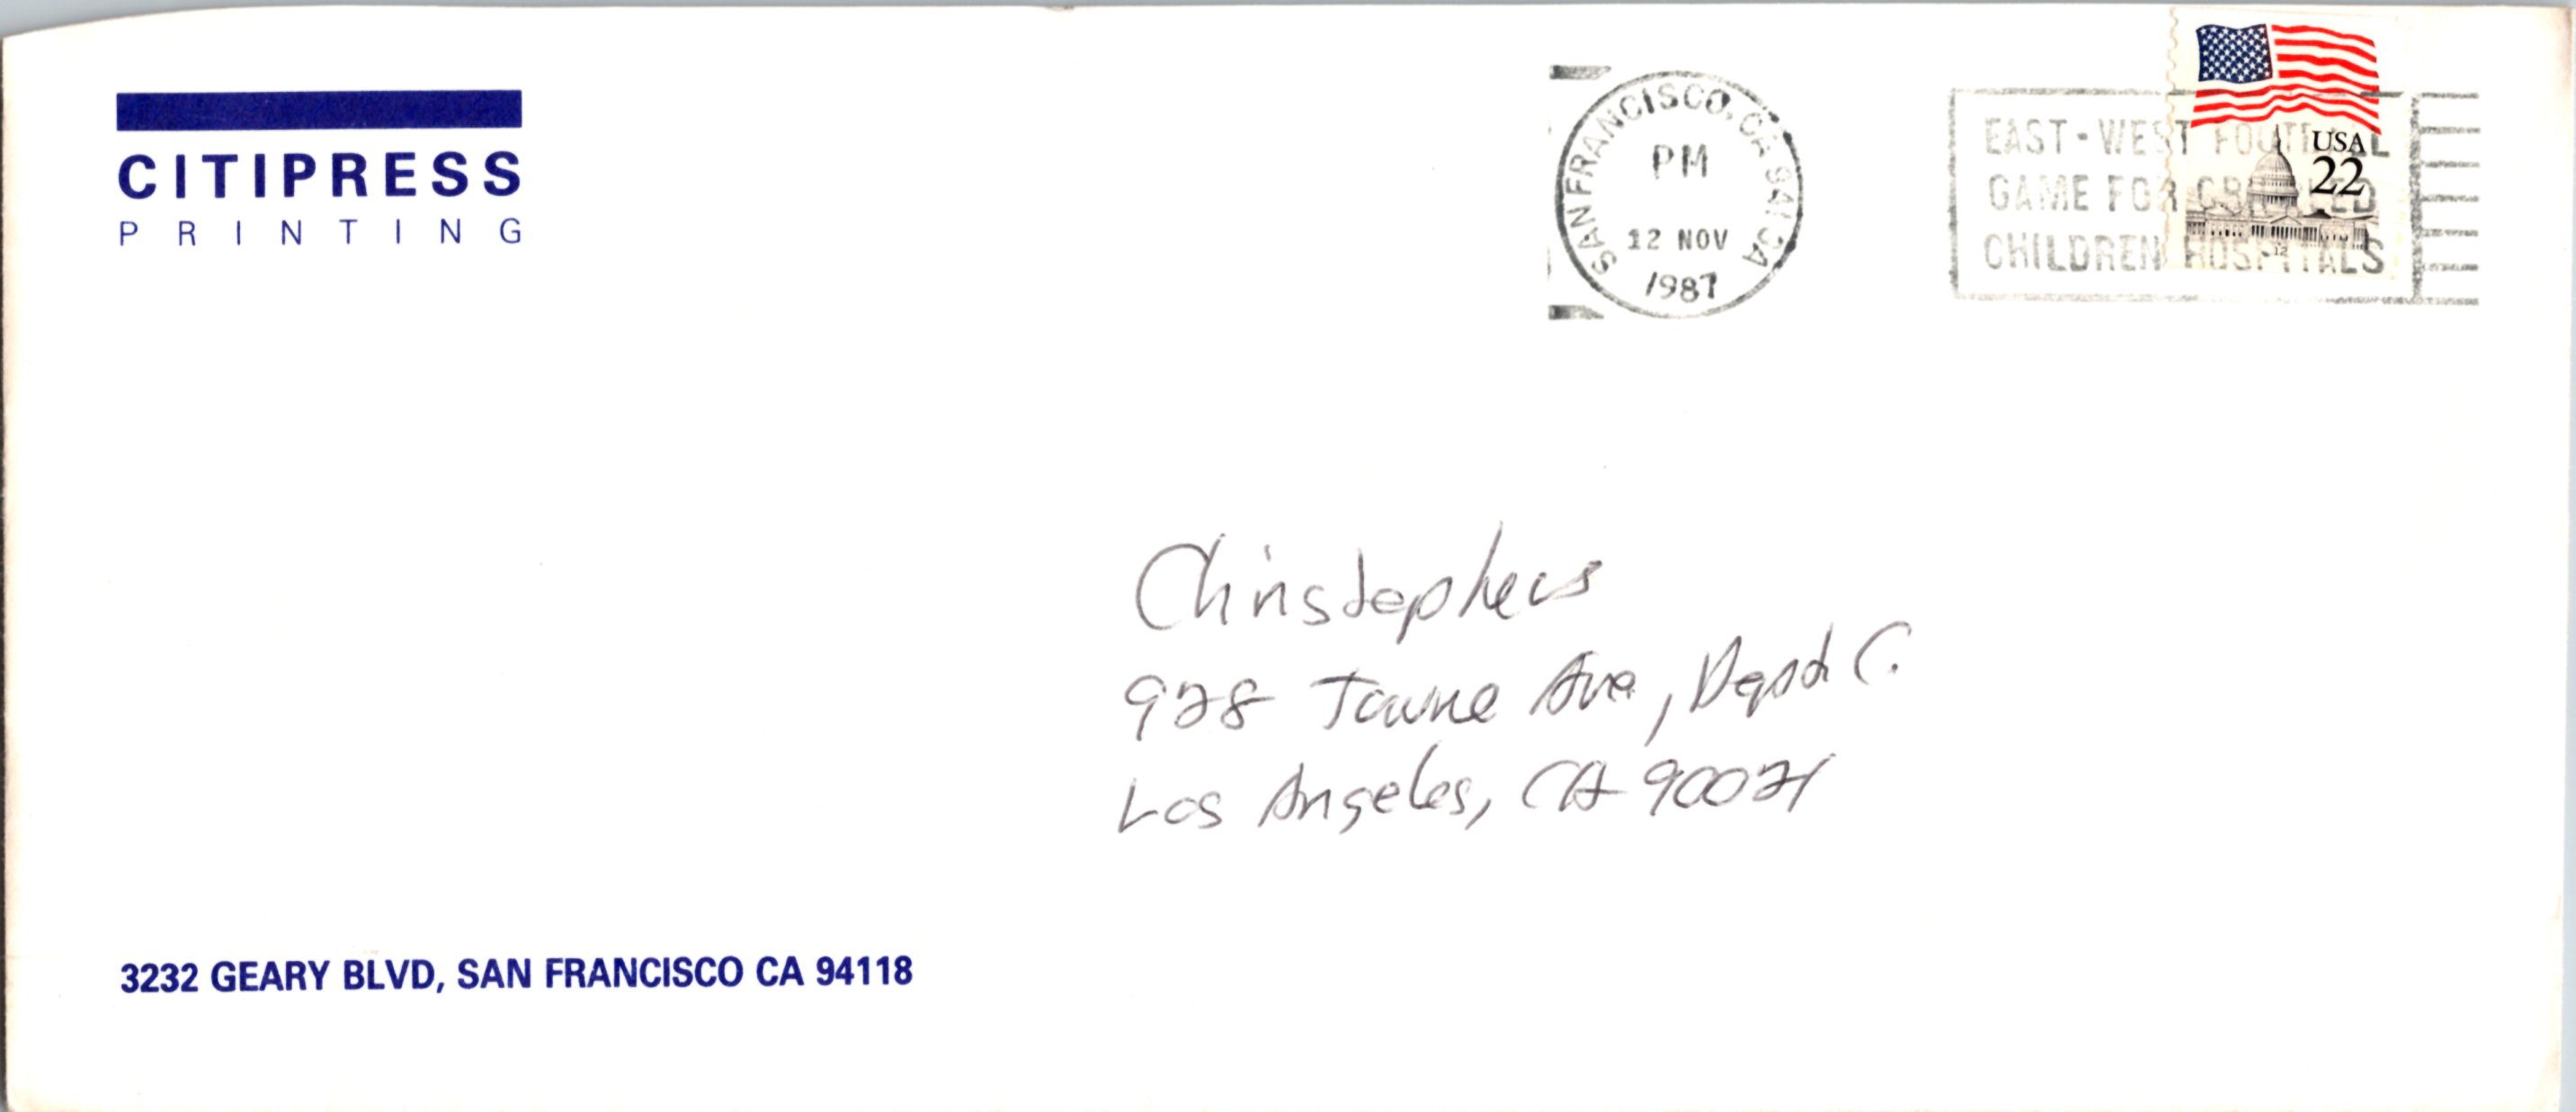 CITIPRESS
PRINTING
SAN FRANCISCO, CA 941
PM
12 NOV
1987
EAST-WEST FOOTBALL
GAME FOR CRIPPLED
CHILDREN HOSPITALS
USA
22
Christophers
928 Towne Ave, Dept C.
Los Angeles, CA 90021
3232 GEARY BLVD, SAN FRANCISCO CA 94118